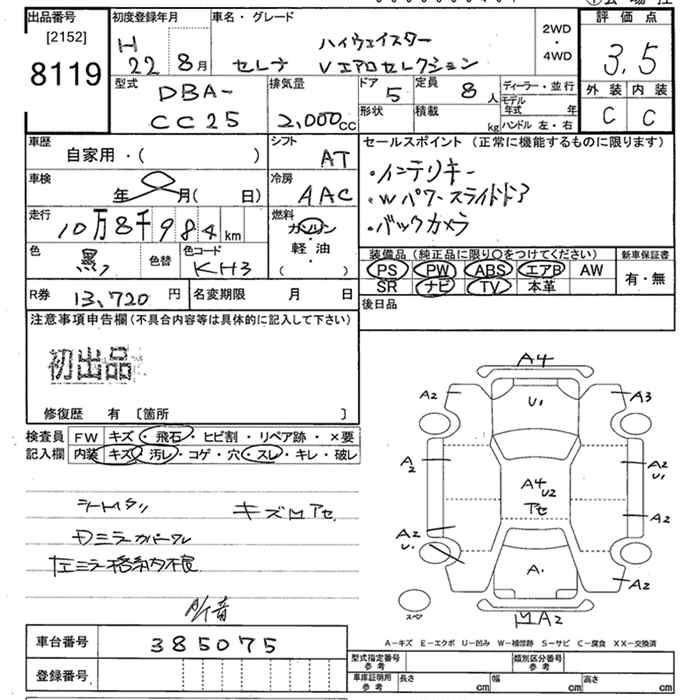 出品番号 初度登録年月 車名・グレード 2WD・4WD 評価点
[2152] H 22 8月 ハイウェイスター 3.5
8119 セレナ Vエアロセレクション 外装 内装
C C
型式 DBA- 排気量 ドア 5 定員 8人 ディーラー・並行
CC25 2,000cc 形状 積載 kg モデル年式 年
ハンドル 左・右
車歴 シフト セールスポイント (正常に機能するものに限ります)
自家用・( ) AT ・インテリキー
車検 年 月( 日) 冷房 AAC ・Wパワースライドドア
走行 10万8千984km 燃料 ガソリン ・バックカメラ
色 黒 色替 色コード KH3 軽油 ( )
装備品(純正品に限り○をつけてください) 新車保証書
PS PW ABS エアB AW 有・無
SR ナビ TV 本革
R券 13,720円 名変期限 月 日 後日品
注意事項申告欄(不具合内容等は具体的に記入して下さい)
初出品
修復歴 有 〔箇所 〕
検査員 FW キズ・飛石・ヒビ割・リペア跡・×要
記入欄 内装 キズ・汚レ・コゲ・穴・スレ・キレ・破レ
A4
A2 U1 A3
A2 A2 U1
A4 U2
アセ A2
A2 U1
A1 A2
スペア
A2
キズ
左ミラー格納不良
A-キズ E-エクボ U-凹み W-補修跡 S-サビ C-腐食 XX-交換済
車台番号 385075
登録番号
型式指定番号 参考 類別区分番号 参考
車庫証明用 参考 長さ cm 幅 cm 高さ cm